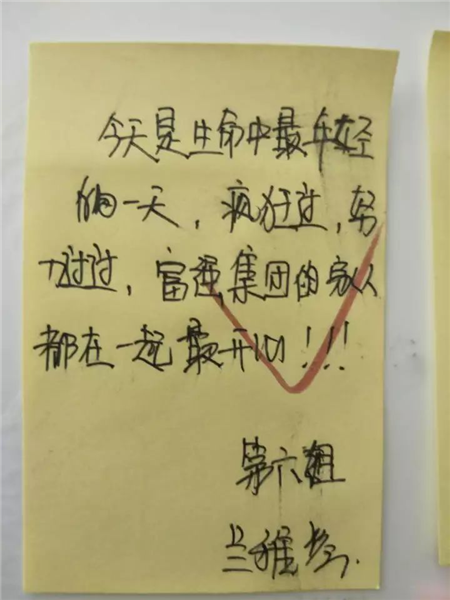 今天是生命中最年轻
的一天，疯狂过，努
力过过，富强集团的家人
都在一起最开心！！！
第六组
兰雅琴.